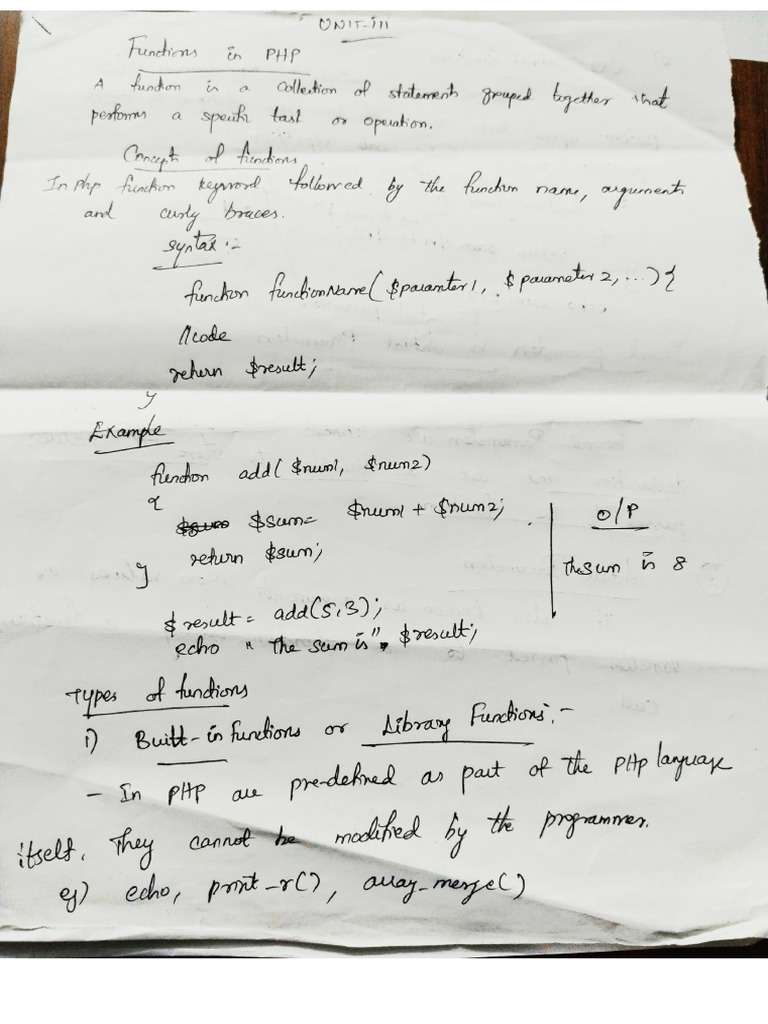 UNIT-III
Functions in PHP
A function is a collection of statements grouped together that
performs a specific task or operation.
Concept of functions
In php function keyword followed by the function name, arguments
and curly braces.
Syntax :-
function functionName($paramter1, $parameter2, ...) {
//code
return $result;
}
Example
function add($num1, $num2)
{
$sum= $num1 + $num2;
return $sum;
}
$result = add(5,3);
echo "The sum is", $result;
O/P
The sum is 8
Types of functions
1) Built-in functions or Library Functions:-
- In PHP are pre-defined as part of the PHP language
itself. They cannot be modified by the programmer.
eg) echo, print_r(), array_merge()